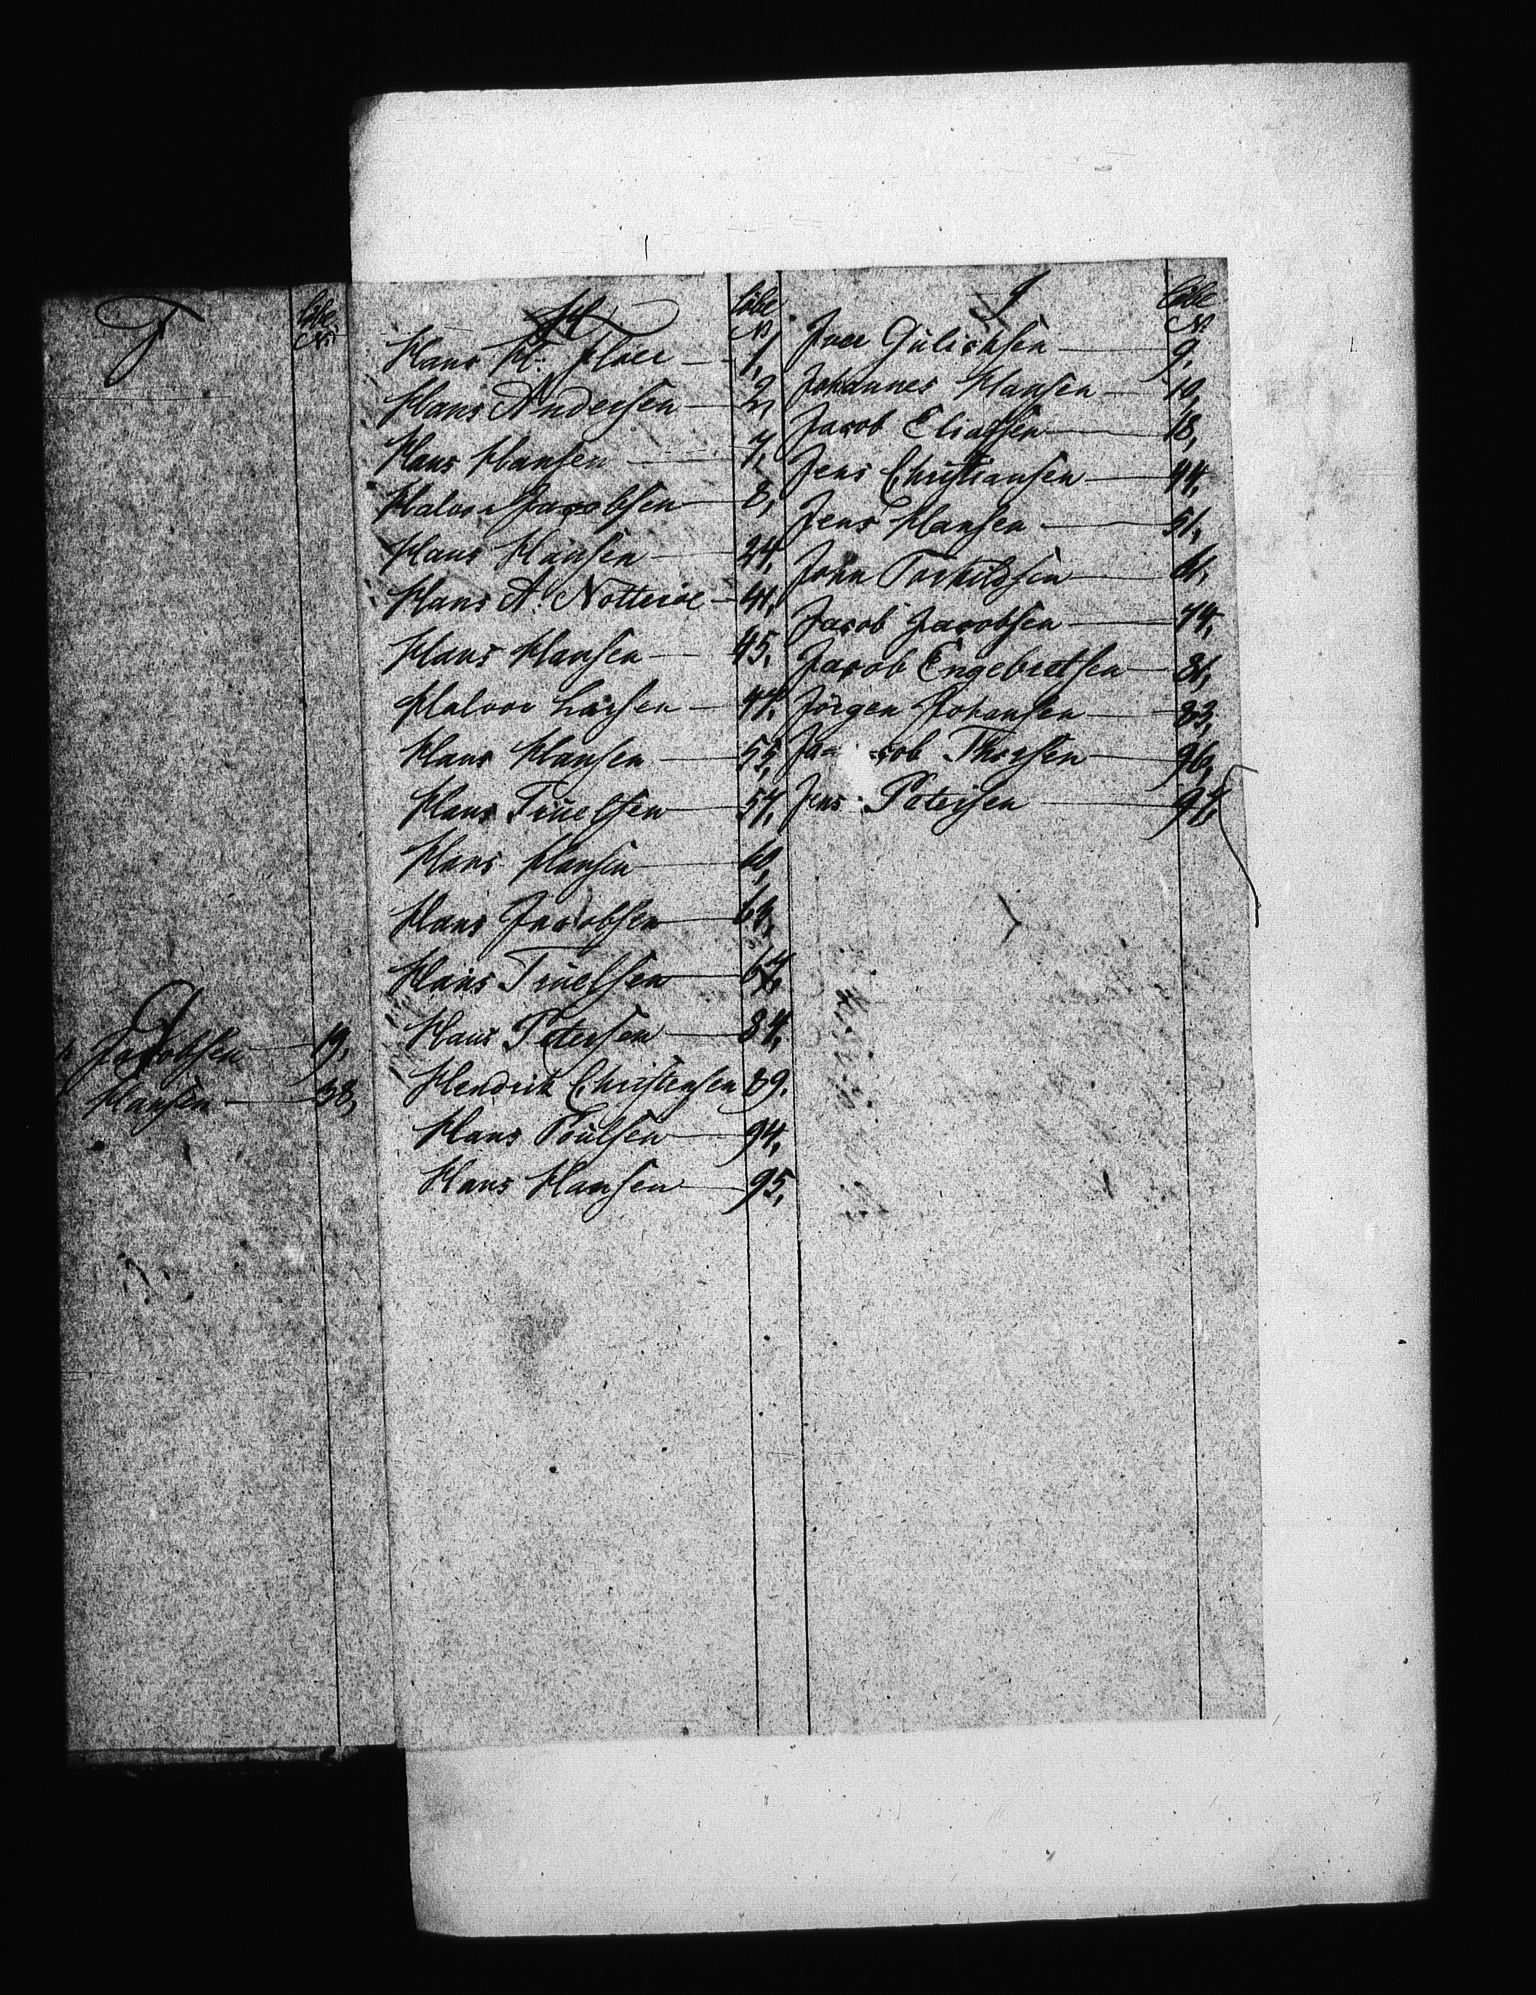 F
Löbe
No
G
Jacobsen 19,
Hansen 38,
H
Löbe
No
Hans H: Floer 1,
Hans Andersen 2,
Hans Hansen 7,
Halvor Jacobsen 8,
Hans Hansen 24,
Hans A: Nötteröe 41,
Hans Hansen 45,
Halvor Larsen 47,
Hans Hansen 55,
Hans Truelsen 57,
Hans Hansen 60,
Hans Jacobsen 63,
Hans Truelsen 67,
Hans Petersen 84,
Hendrik Christensen 89,
Hans Poulsen 94,
Hans Hansen 95,
I
Löbe
No
Iver Gulichsen 9,
Johannes Hansen 10,
Jacob Eliassen 18,
Jens Christiansen 44,
Jens Hansen 51,
John Torkildsen 61,
Jacob Jacobsen 74,
Jacob Engebretsen 81,
Jörgen Johansen 83,
Jacob Thorsen 96,
Jens Petersen 97,